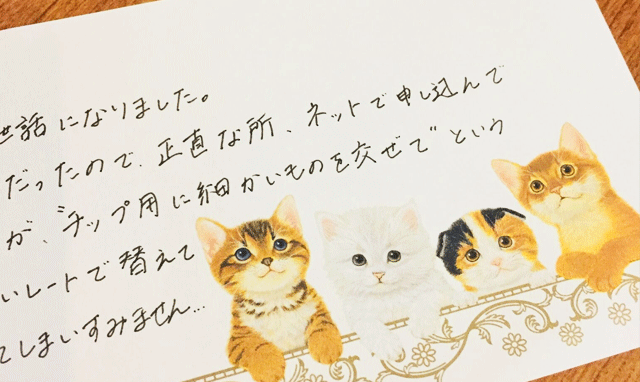 世話になりました。
だったので、正直な所、ネットで申し込んで
が、"チップ用に細かいものを交ぜて"という
いレートで替えて
てしまいすみません…